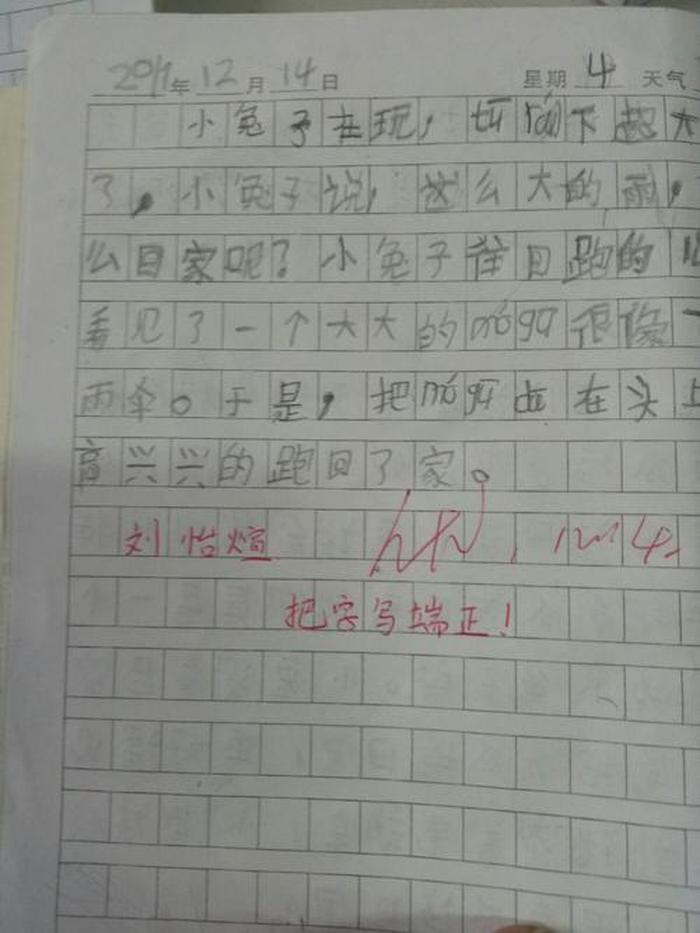 2017年12月14日 星期4 天气
小兔子在玩，tū rán下起大
了，小兔子说，这么大的雨，
么回家呢？小兔子往回跑的
看见了一个大大的mó gū很像一
雨伞。于是，把mó gū 在头上
高兴兴的跑回了家。
刘怡煊 12.14
把字写端正！